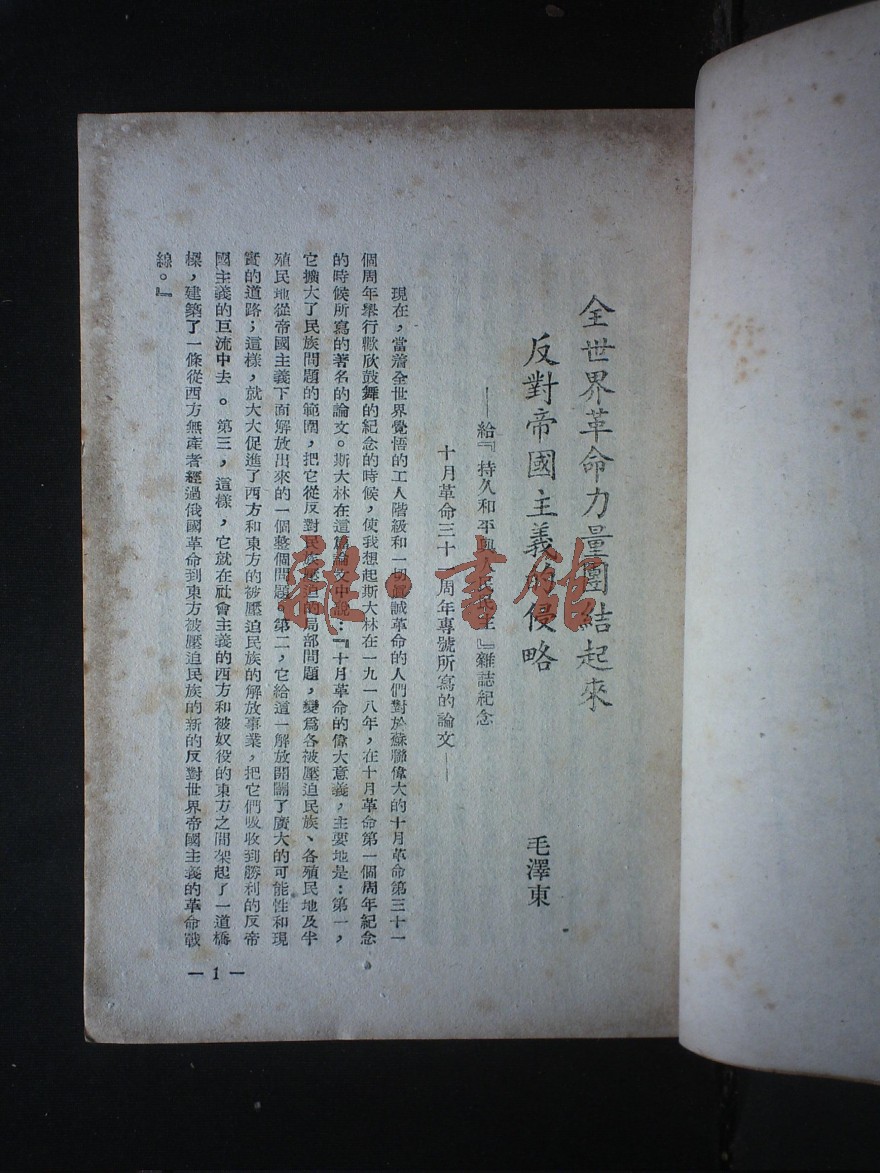 全世界革命力量團結起來
反對帝國主義的侵略
毛澤東
——給『持久和平與人民民主』雜誌紀念
十月革命三十一周年專號所寫的論文——
現在，當着全世界覺悟的工人階級和一切眞誠革命的人們對於蘇聯偉大的十月革命第三十一
個周年舉行歡欣鼓舞的紀念的時候，使我想起斯大林在一九一八年，在十月革命第一個周年紀念
的時候所寫的著名的論文。斯大林在這篇論文中說：『十月革命的偉大意義，主要地是：第一，
它擴大了民族問題的範圍，把它從反對民族壓迫的局部問題，變爲各被壓迫民族、各殖民地及半
殖民地從帝國主義下面解放出來的一個整個問題。第二，它給這一解放開闢了廣大的可能性和現
實的道路；這樣，就大大促進了西方和東方的被壓迫民族的解放事業，把它們吸收到勝利的反帝
國主義的巨流中去。第三，這樣，它就在社會主義的西方和被奴役的東方之間架起了一道橋
樑，建築了一條從西方無產者經過俄國革命到東方被壓迫民族的新的反對世界帝國主義的革命戰
線。』
— 1 —
雜·書館